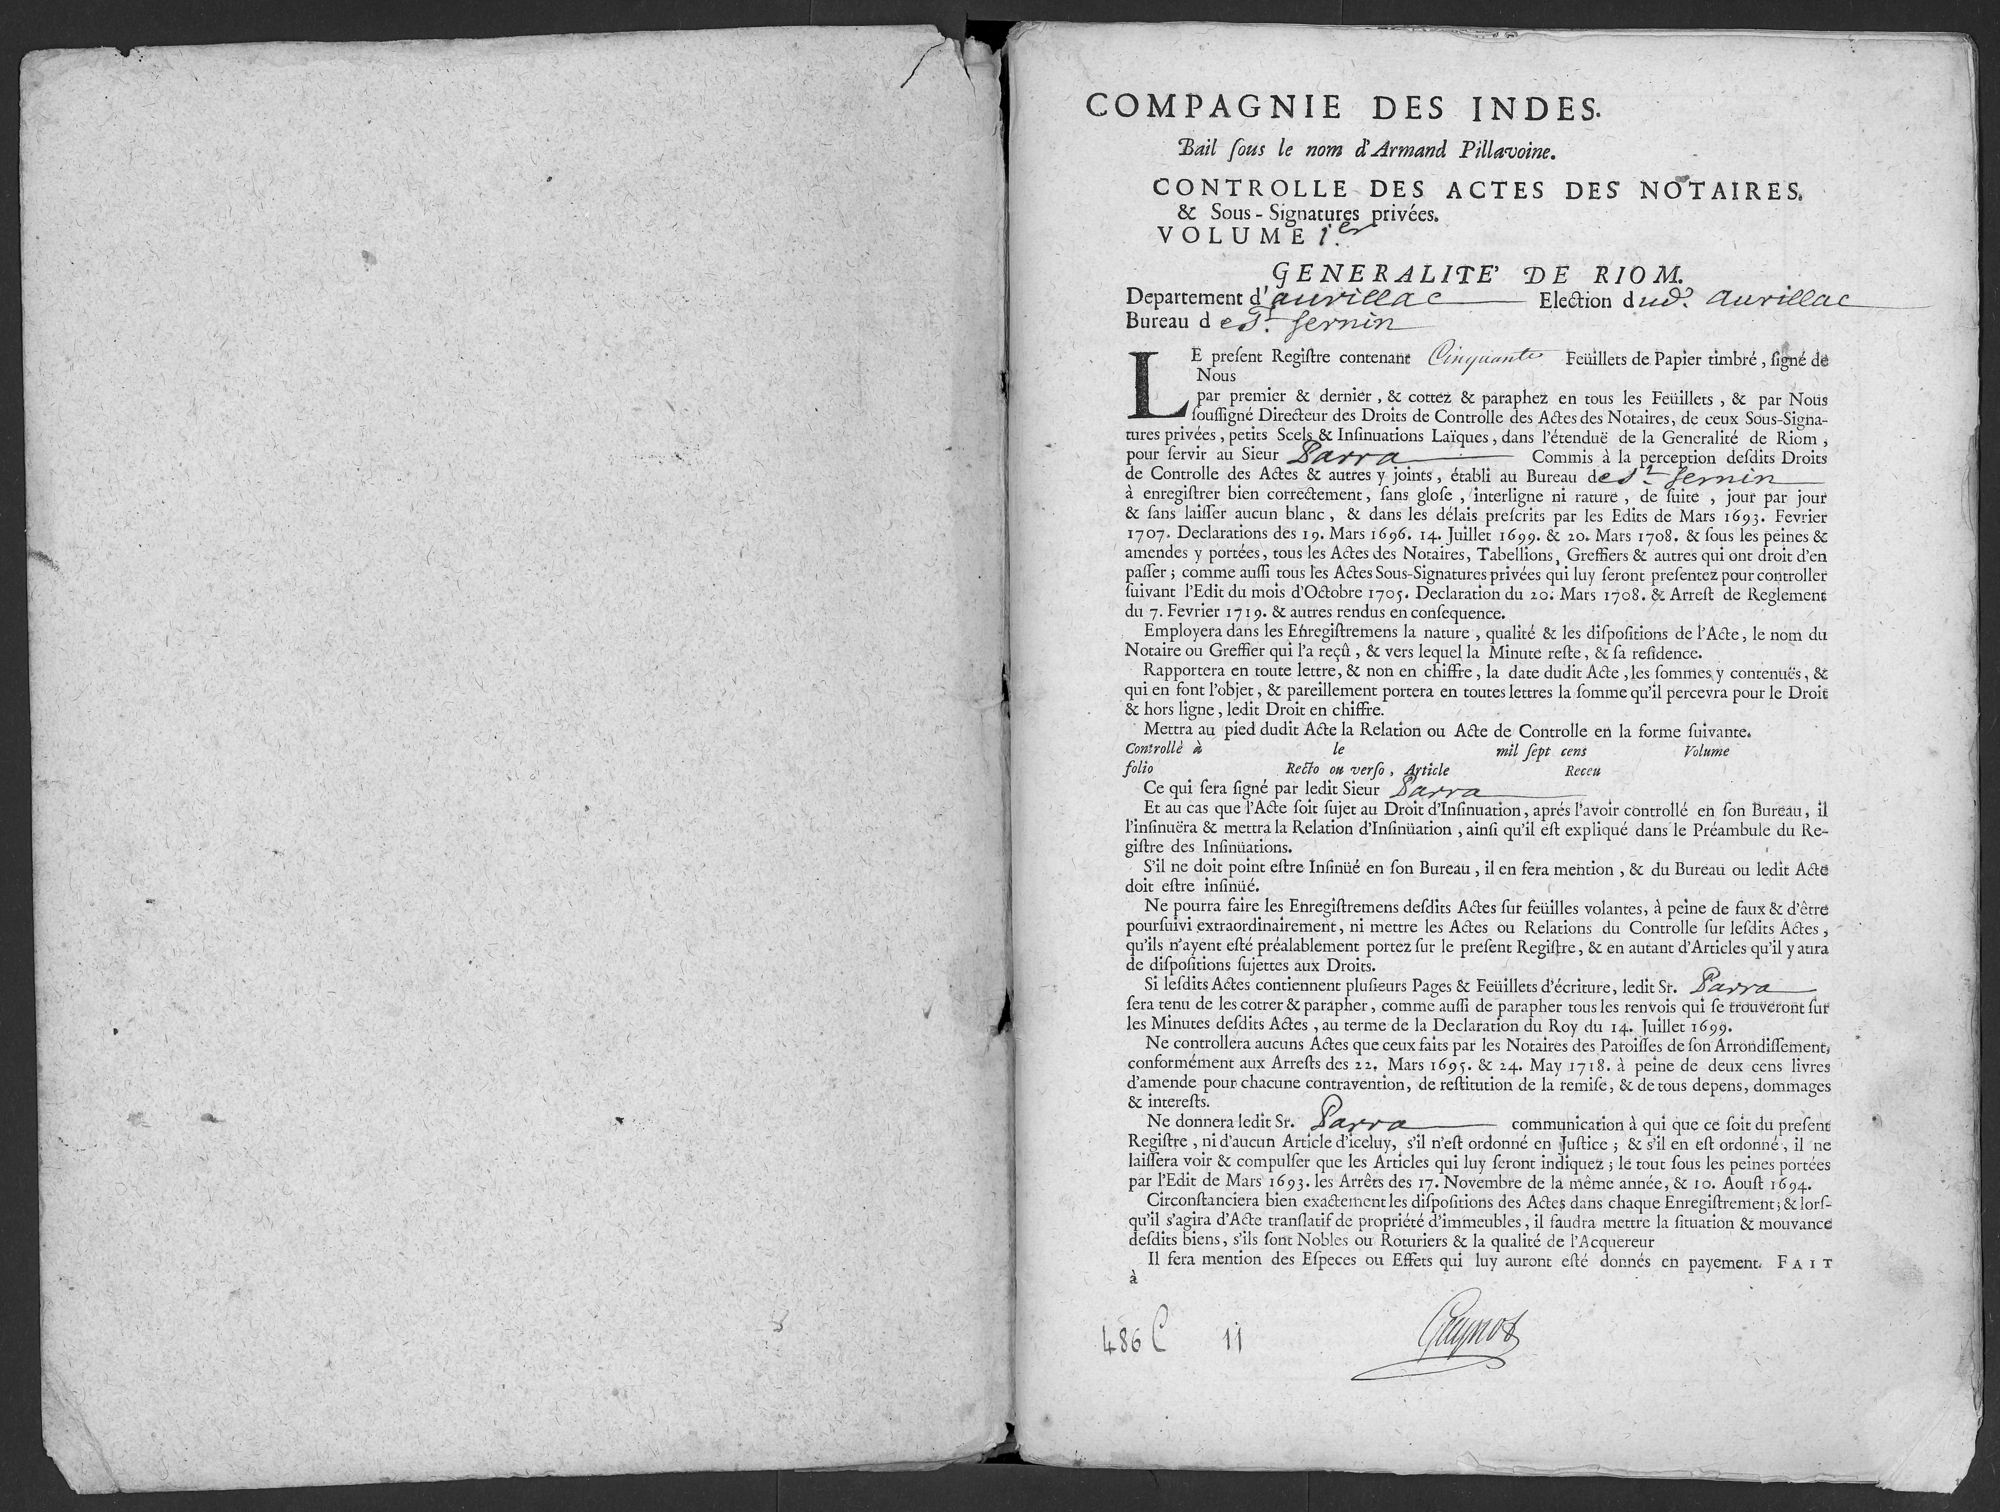 COMPAGNIE DES INDES.
Bail ſous le nom d'Armand Pillavoine.
CONTROLLE DES ACTES DES NOTAIRES.
& Sous-Signatures privées.
VOLUME 1.er
GENERALITE' DE RIOM.
Departement d'aurillac Election dud. aurillac
Bureau de St. Sernin
LE preſent Regiſtre contenant Cinquante Feüillets de Papier timbré, ſigné de
Nous
par premier & dernier, & cottez & paraphez en tous les Feüillets, & par Nous
ſouſſigné Directeur des Droits de Controlle des Actes des Notaires, de ceux Sous-Signa-
tures privées, petits Scels & Inſinuations Laïques, dans l'étenduë de la Generalité de Riom,
pour ſervir au Sieur Parra Commis à la perception deſdits Droits
de Controlle des Actes & autres y joints, établi au Bureau de St. Sernin
à enregiſtrer bien correctement, ſans gloſe, interligne ni rature, de ſuite, jour par jour
& ſans laiſſer aucun blanc, & dans les délais preſcrits par les Edits de Mars 1693. Fevrier
1707. Declarations des 19. Mars 1696. 14. Juillet 1699. & 20. Mars 1708. & ſous les peines &
amendes y portées, tous les Actes des Notaires, Tabellions, Greffiers & autres qui ont droit d'en
paſſer; comme auſſi tous les Actes Sous-Signatures privées qui luy ſeront preſentez pour controller
ſuivant l'Edit du mois d'Octobre 1705. Declaration du 20. Mars 1708. & Arreſt de Reglement
du 7. Fevrier 1719. & autres rendus en conſequence.
Employera dans les Enregiſtremens la nature, qualité & les diſpoſitions de l'Acte, le nom du
Notaire ou Greffier qui l'a reçû, & vers lequel la Minute reſte, & ſa reſidence.
Rapportera en toute lettre, & non en chiffre, la date dudit Acte, les ſommes y contenuës, &
qui en font l'objet, & pareillement portera en toutes lettres la ſomme qu'il percevra pour le Droit
& hors ligne, ledit Droit en chiffre.
Mettra au pied dudit Acte la Relation ou Acte de Controlle en la forme ſuivante.
Controllé à le mil ſept cens Volume
folio Recto ou verſo, Article Receu
Ce qui ſera ſigné par ledit Sieur Parra
Et au cas que l'Acte ſoit ſujet au Droit d'Inſinuation, aprés l'avoir controllé en ſon Bureau, il
l'inſinuëra & mettra la Relation d'Inſinüation, ainſi qu'il eſt expliqué dans le Préambule du Re-
giſtre des Inſinüations.
S'il ne doit point eſtre Inſinüé en ſon Bureau, il en fera mention, & du Bureau ou ledit Acte
doit eſtre inſinüé.
Ne pourra faire les Enregiſtremens deſdits Actes ſur feüilles volantes, à peine de faux & d'être
pourſuivi extraordinairement, ni mettre les Actes ou Relations du Controlle ſur leſdits Actes,
qu'ils n'ayent eſté préalablement portez ſur le preſent Regiſtre, & en autant d'Articles qu'il y aura
de diſpoſitions ſujettes aux Droits.
Si leſdits Actes contiennent pluſieurs Pages & Feüillets d'écriture, ledit Sr. Parra
ſera tenu de les cotter & parapher, comme auſſi de parapher tous les renvois qui ſe trouveront ſur
les Minutes deſdits Actes, au terme de la Declaration du Roy du 14. Juillet 1699.
Ne controllera aucuns Actes que ceux faits par les Notaires des Paroiſſes de ſon Arrondiſſement,
conformément aux Arreſts des 22. Mars 1695. & 24. May 1718. à peine de deux cens livres
d'amende pour chacune contravention, de reſtitution de la remiſe, & de tous depens, dommages
& intereſts.
Ne donnera ledit Sr. Parra communication à qui que ce ſoit du preſent
Regiſtre, ni d'aucun Article d'iceluy, s'il n'eſt ordonné en Juſtice; & s'il en eſt ordonné, il ne
laiſſera voir & compulſer que les Articles qui luy ſeront indiquez; le tout ſous les peines portées
par l'Edit de Mars 1693. les Arrêts des 17. Novembre de la même année, & 10. Aouſt 1694.
Circonſtanciera bien exactement les diſpoſitions des Actes dans chaque Enregiſtrement; & lorſ-
qu'il s'agira d'Acte tranſlatif de propriété d'immeubles, il faudra mettre la ſituation & mouvance
deſdits biens, s'ils ſont Nobles ou Roturiers & la qualité de l'Acquereur
Il fera mention des Eſpeces ou Effets qui luy auront eſté donnés en payement. FAIT
à
486 C 11